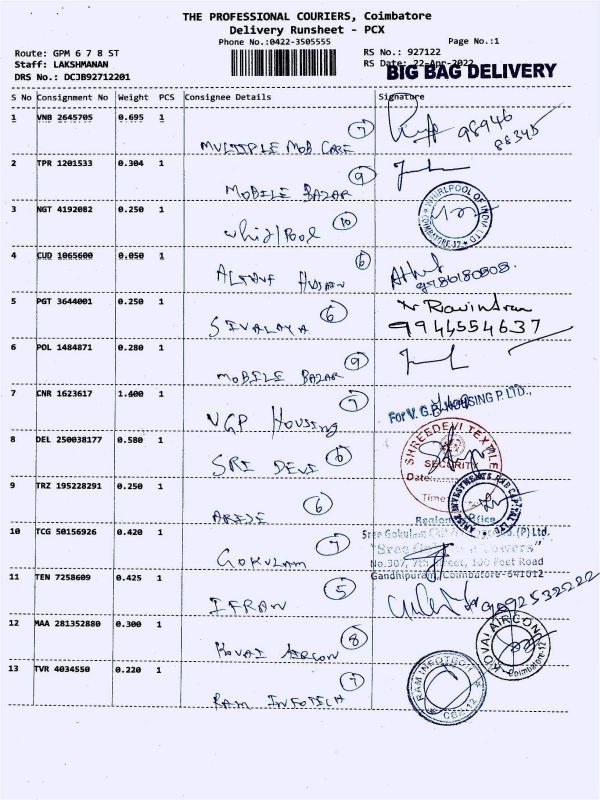 THE PROFESSIONAL COURIERS, Coimbatore
Delivery Runsheet - PCX
Phone No.:0422-3505555
Page No.:1
Route: GPM 6 7 8 ST
RS No.: 927122
Staff: LAKSHMANAN
RS Date: 22-Apr-2022
DRS No.: DCJB92712201
BIG BAG DELIVERY
S No Consignment No Weight PCS Consignee Details Signature
1 VNB 2645705 0.695 1
MULTIPLE MOB CARE 7
98946
88345
2 TPR 1201533 0.304 1
MOBILE BAZAR 9
3 NGT 4192082 0.250 1
Whirlpool 10
WHIRLPOOL OF INDIA LTD
COIMBATORE-12
4 CUD 1065600 0.050 1
ALTAUF HUSAIN 6
5 PGT 3644001 0.250 1
SIVALAYA 6
Ravindran
9944554637
6 POL 1484871 0.280 1
MOBILE BAZAR 9
7 CNR 1623617 1.400 1
VGP Housing 7
For V.G.P. HOUSING P. LTD.,
8 DEL 250038177 0.580 1
SRI DEVI 6
SHREEDEVI TEXTILE
SECURITY
Date
Time
9 TRZ 195228291 0.250 1
ARISE 6
ARISE INVESTMENTS
Regional Office
10 TCG 50156926 0.420 1
GOKULAM 7
Sree Gokulam (P) Ltd.
"Sree Towers"
No.307, 7th Street, 100 Feet Road
Gandhipuram, Coimbatore-641012
11 TEN 7258609 0.425 1
IFRAN 5
9092532222
12 MAA 281352880 0.300 1
KOVAI AIRCON 8
KOVAI AIRCON
Coimbatore-12
13 TVR 4034550 0.220 1
RAM INFOTECH 7
RAM INFOTECH
CBE-12